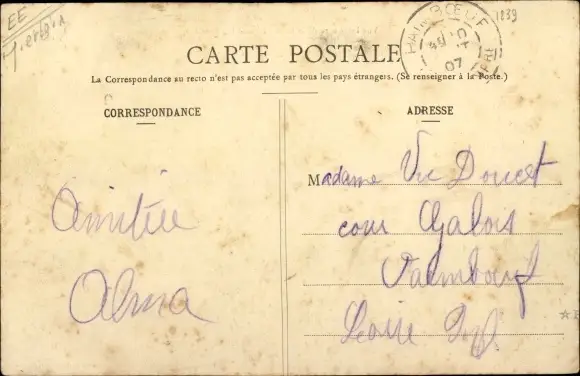 EE
1839
CARTE POSTALE
La Correspondance au recto n'est pas acceptée par tous les pays étrangers. (Se renseigner à la Poste.)
CORRESPONDANCE
ADRESSE
Amitié
Alma
Madame Vve Doucet
cour Galois
Paimbœuf
Loire Inf
07